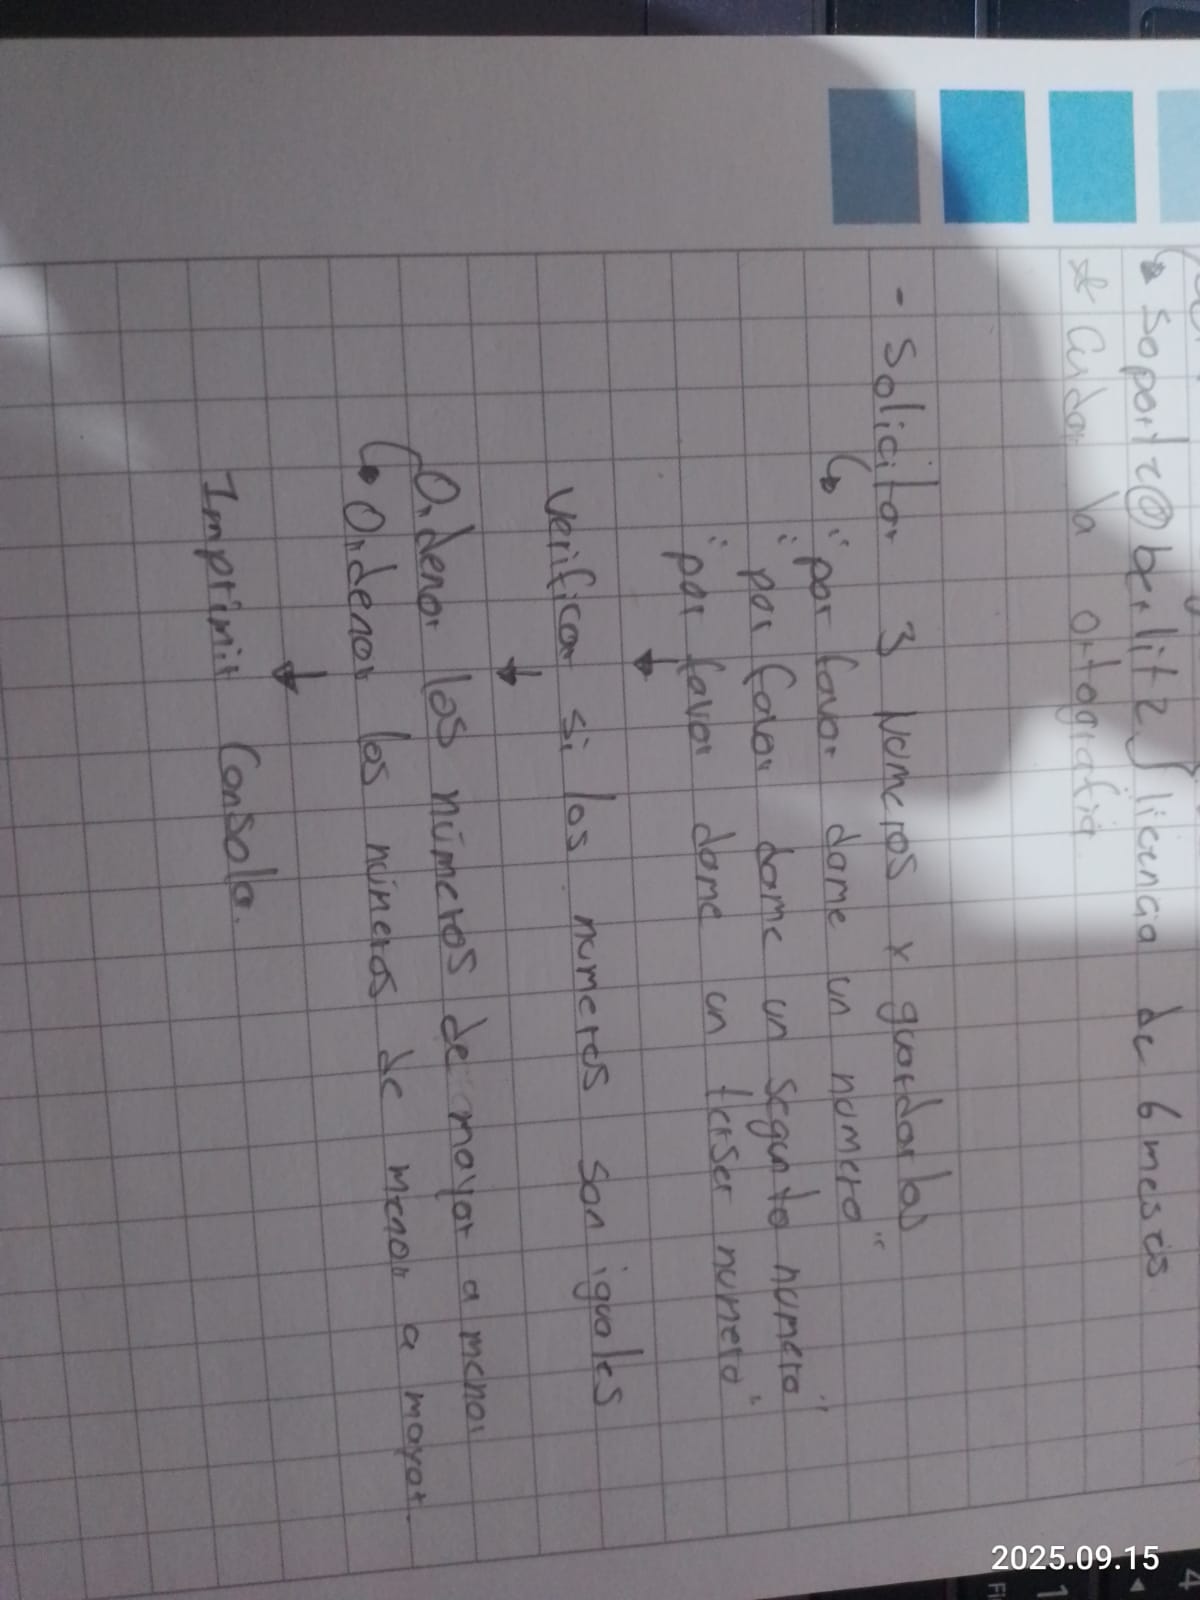 soporte@berlitz } licencia de 6 meses
* Cuidar la ortografia
- Solicitar 3 Numeros y guardarlos
↳ "por favor dame un numero"
"por favor dame un segundo numero"
"por favor dame un terser numero"
↓
Verificar si los numeros son iguales
↓
Ordenar los números de mayor a menor
↳ Ordenar los números de menor a mayor.
↓
Imprimir Consola.
2025.09.15